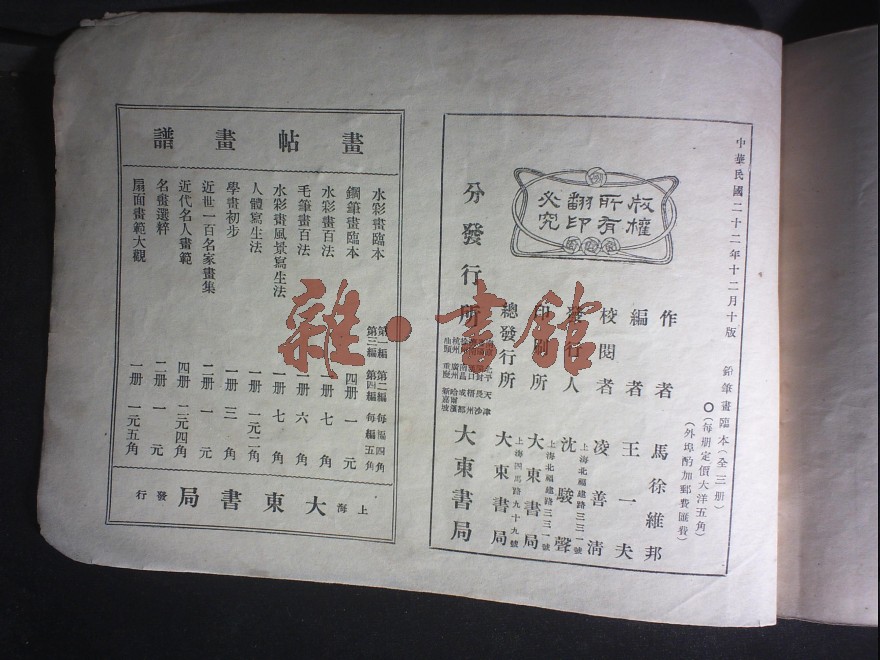 中華民國二十二年十二月十版
鉛筆畫臨本（全三册）
（每期定價大洋五角）
（外埠酌加郵費匯費）
版權所有翻印必究
作者 馬徐維邦
編者 王一夫
校閱者 凌善清
發行人 沈駿聲
上海北福建路三三一號
印刷所 大東書局
上海北福建路三三一號
總發行所 大東書局
上海四馬路九十九號
分發行所 大東書局
畫帖畫譜
水彩畫臨本 第一編 第二編 每編四角
第三編 第四編 每編五角
鋼筆畫臨本 四册 一元
水彩畫百法 一册 七角
毛筆畫百法 一册 六角
水彩畫風景寫生法 一册 七角
人體寫生法 一册 一元二角
學畫初步 一册 三角
近世一百名家畫集 二册 一元
近代名人畫範 四册 二元四角
名畫選粹 二册 一元
扇面畫範大觀 一册 一元五角
上海大東書局發行
雜·書館